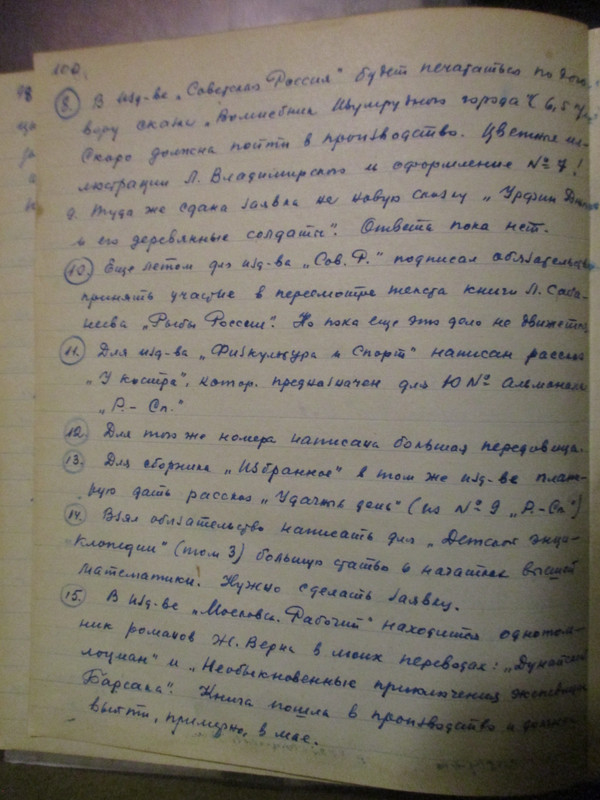 100.
8. В изд-ве „Советская Россия" будет печататься по дого-
вору сказка „Волшебник Изумрудного города"
Скоро должна пойти в производство. Цветные ил-
люстрации Л. Владимирского и оформление
Туда же сдана заявка на новую сказку „Урфин Джюс
и его деревянные солдаты". Ответа пока нет.
10. Еще летом для изд-ва „Сов. Р." подписал обязательство
принять участие в пересмотре текста книги Л. Саба-
неева „Рыбы России". Но пока еще это дело не движется
11. Для изд-ва „Физкультура и Спорт" написан рассказ
„У костра", котор. предназначен для 10 № альманаха
„Р.-Сп."
12. Для того же номера написана большая передовица.
13. Для сборника „Избранное" в том же изд-ве плани-
рую дать рассказ „Удачный день" (из № 9 „Р.-Сп")
14. Взял обязательство написать для „Детской энци-
клопедии" (том 3) большую статью о начатках высшей
математики. Нужно сделать заявку.
15. В изд-ве „Московск. Рабочий" находится однотом-
ник романов Ж. Верна в моих переводах: „Дунайский
лоцман" и „Необыкновенные приключения экспедиции
Барсака". Книга пошла в производство и должна
выйти, примерно, в мае.